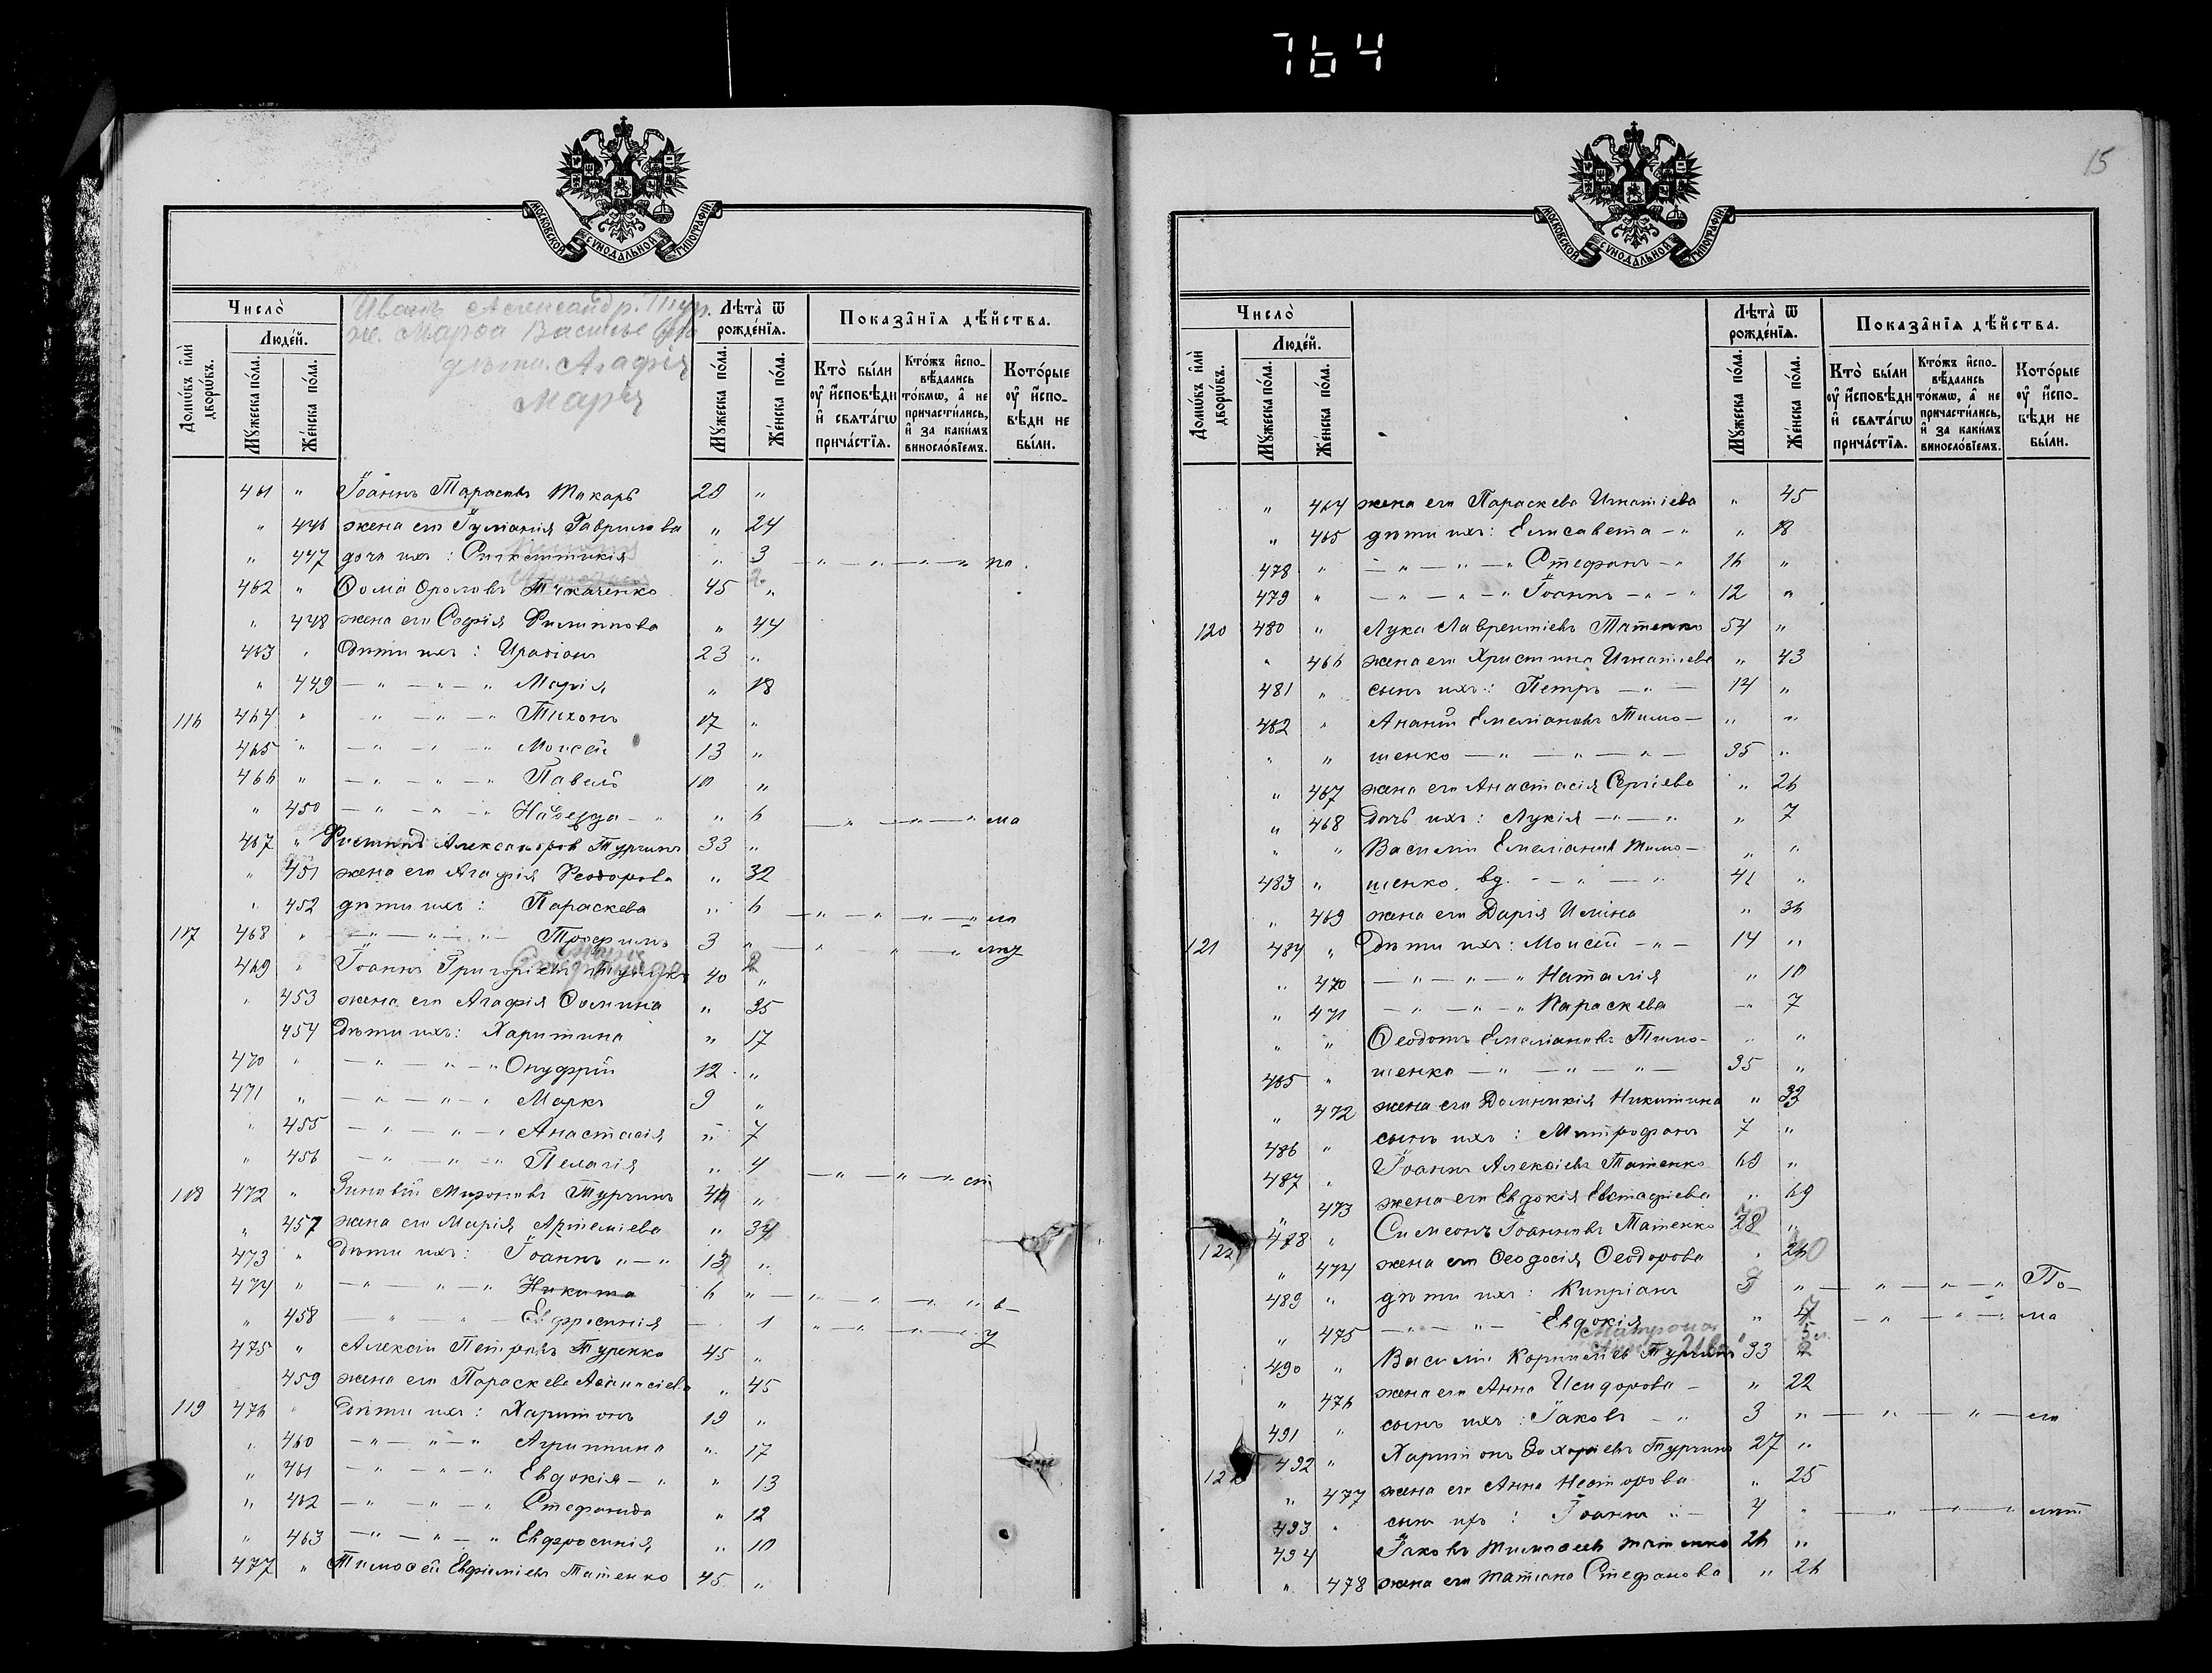 764
МОСКОВСКОЙ СУНОДАЛЬНОЙ ТИПОГРАФІИ
Число̀
Иванъ Александр. Тур.
ж. Марѳа Василье
дѣти. Агафія
Марія
Лѣта̀ ѿ рожде́нїя.
Показа̑нїя дѣ́йства.
Домѡ́въ и҆лѝ дворѡ́въ.
Люде́й.
Мꙋ́жеска по́ла.
Же́нска по́ла.
Мꙋ́жеска по́ла.
Же́нска по́ла.
Кто̀ бы́ли ᲂу҆ и҆спо́вѣди и҆ свѧта́гѡ прича́стїѧ.
Кто́жъ и҆спо-вѣ́дались то́кмѡ, а҆ не причасти́лись, и҆ за каки́мъ виносло́вїемъ.
Кото́рые ᲂу҆ и҆спо-вѣди не бы́ли.
461 " Іоаннъ Тарасовъ Макаръ 28 "
" 446 жена его Іуліанія Гаврилова " 24
" 447 дочь ихъ: Синклитикія " 3 — " — " — " — " ма
462 " Ѳома Фроловъ Ткаченко 45 "
" 448 жена его Софія Филиппова " 44
463 " Дѣти ихъ: Иродіонъ 23 "
" 449 — " — " — " Марія " 18
116 464 " — " — " — " Тихонъ 17 "
465 " — " — " — " Моисей 13 "
466 " — " — " — " Павелъ 10 "
" 450 — " — " — " Надежда — " " 6 — " — " — " ма
467 " Филиппъ Александровъ Турчинъ 33 "
" 451 жена его Агафія Ѳеодорова " 32
" 452 дѣти ихъ: Параскева " 6 — " — " — " — " ло
117 468 " — " — " — " Трофимъ 3 " — " — " — "
469 " Іоаннъ Григоріевъ 40 "
" 453 жена его Агафія Ѳомина " 35
" 454 Дѣти ихъ: Харитина " 17
470 " — " — " — " Онуфрій 12 "
471 " — " — " — " Маркъ 9 "
" 455 — " — " — " Анастасія " 7
" 456 — " — " — " Пелагія " 4 — " — " — " ст
118 472 " Зиновій Мироновъ Турчинъ "
" 457 жена его Марія Артеміева " 34
473 " Дѣти ихъ: Іоаннъ " — " 13 "
474 " — " — " — " Никита 6 " — " — " — " в—
" 458 — " — " — Евфросинія — 1 " — " — " — у
475 " Алексій Петровъ Туренко 45 "
459 жена его Параскева Аѳанасіева " 45
119 476 " Дѣти ихъ: Харитонъ 19 "
" 460 — " — " — " Агриппина " 17
" 461 — " — " — " Евдокія — " " 13
" 462 — " — " — " Стефанида " 12
" 463 — " — " — " Евфросинія " 10
477 " Тимоѳей Евфиміевъ Татенко 45 "
15
МОСКОВСКОЙ СУНОДАЛЬНОЙ ТИПОГРАФІИ
Число̀
Лѣта̀ ѿ рожде́нїя.
Показа̑нїя дѣ́йства.
Домѡ́въ и҆лѝ дворѡ́въ.
Люде́й.
Мꙋ́жеска по́ла.
Же́нска по́ла.
Мꙋ́жеска по́ла.
Же́нска по́ла.
Кто̀ бы́ли ᲂу҆ и҆спо́вѣди и҆ свѧта́гѡ прича́стїѧ.
Кто́жъ и҆спо-вѣ́дались то́кмѡ, а҆ не причасти́лись, и҆ за каки́мъ виносло́вїемъ.
Кото́рые ᲂу҆ и҆спо-вѣди не бы́ли.
" 464 жена его Параскева Игнатіева " 45
" 465 дѣти ихъ: Елисавета — " " 18
478 " — " — " — " Стефанъ — " 16 "
479 " — " — " — " Іоаннъ — " — " 12 "
120 480 " Лука Лаврентіевъ Татенко 54 "
" 466 жена его Христина Игнатіева " 43
481 " сынъ ихъ: Петръ — " — 14 "
482 " Ананій Емеліановъ Тимо— " "
" " шенко — " — " — " — 35 "
" 467 жена его Анастасія Сергіева " 26
" 468 Дочь ихъ: Лукія — " — " " 7
" " Василій Емеліановъ Тимо— " "
483 " шенко, вд. — " — " 41 "
" 469 жена его Дарія Иліина " 36
121 484 " Дѣти ихъ: Моисей — " — 14 "
" 470 — " — " — " Наталія " 10
" 471 — " — " — " Параскева " 7
" " Ѳеодотъ Емеліановъ Тимо— " "
485 " шенко — " — " — " — 35 "
" 472 жена его Домникія Никитина " 33
486 " сынъ ихъ: Митрофанъ 7 "
487 " Іоаннъ Алексіевъ Татенко 68 "
" 473 жена его Евдокія Евстафіева " 69
122 488 " Симеонъ Іоанновъ Татенко 28 "
" 474 жена его Ѳеодосія Ѳеодорова " 26
489 " дѣти ихъ: Кипріанъ 3 " — " — " — " По—
" 475 — " — " — Евдокія " — " — " — ма
Матрона
490 " Василій Корниліевъ Турчинъ 33 "
" 476 жена его Анна Исидорова — " 22
491 " сынъ ихъ: Іаковъ — " 3 " — " — " — ло
123 492 " Харитонъ Захаріевъ Турчинъ 27 "
" 477 жена его Анна Несторова " 25
493 " сынъ ихъ: Іоаннъ " — 4 " — " — " — " лѣт
494 " Іаковъ Тимоѳеевъ Татенко 26 "
" 478 жена его Татіана Стефанова " 26